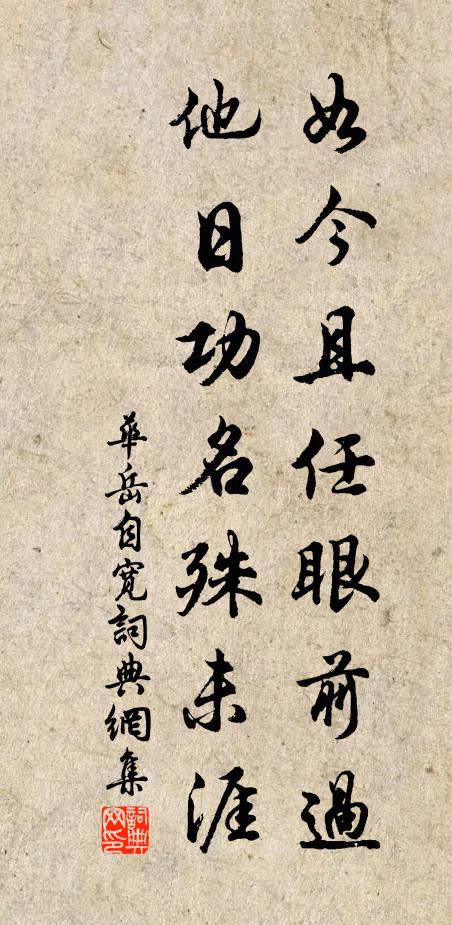 如今且任眼前過
他日功名殊未涯
華岳自寬詞典網集
詞典網印